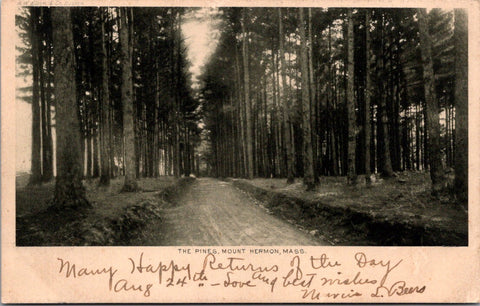 THE PINES, MOUNT HERMON, MASS.
Many Happy Returns of the Day
Aug 24th - Love and best wishes
L. Beers